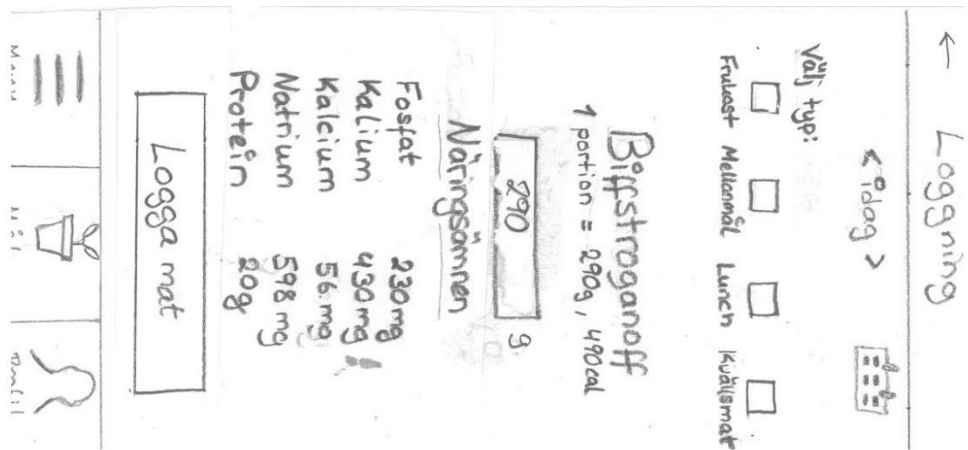 ← Loggning
< idag >
Välj typ:
Frukost Mellanmål Lunch Kvällsmat
Biffstroganoff
1 portion = 290g, 490cal
290 g
Näringsämnen
Fosfat 230mg
Kalium 430mg !!
Kalcium 56 mg
Natrium 598 mg
Protein 20g
Logga mat
Profil